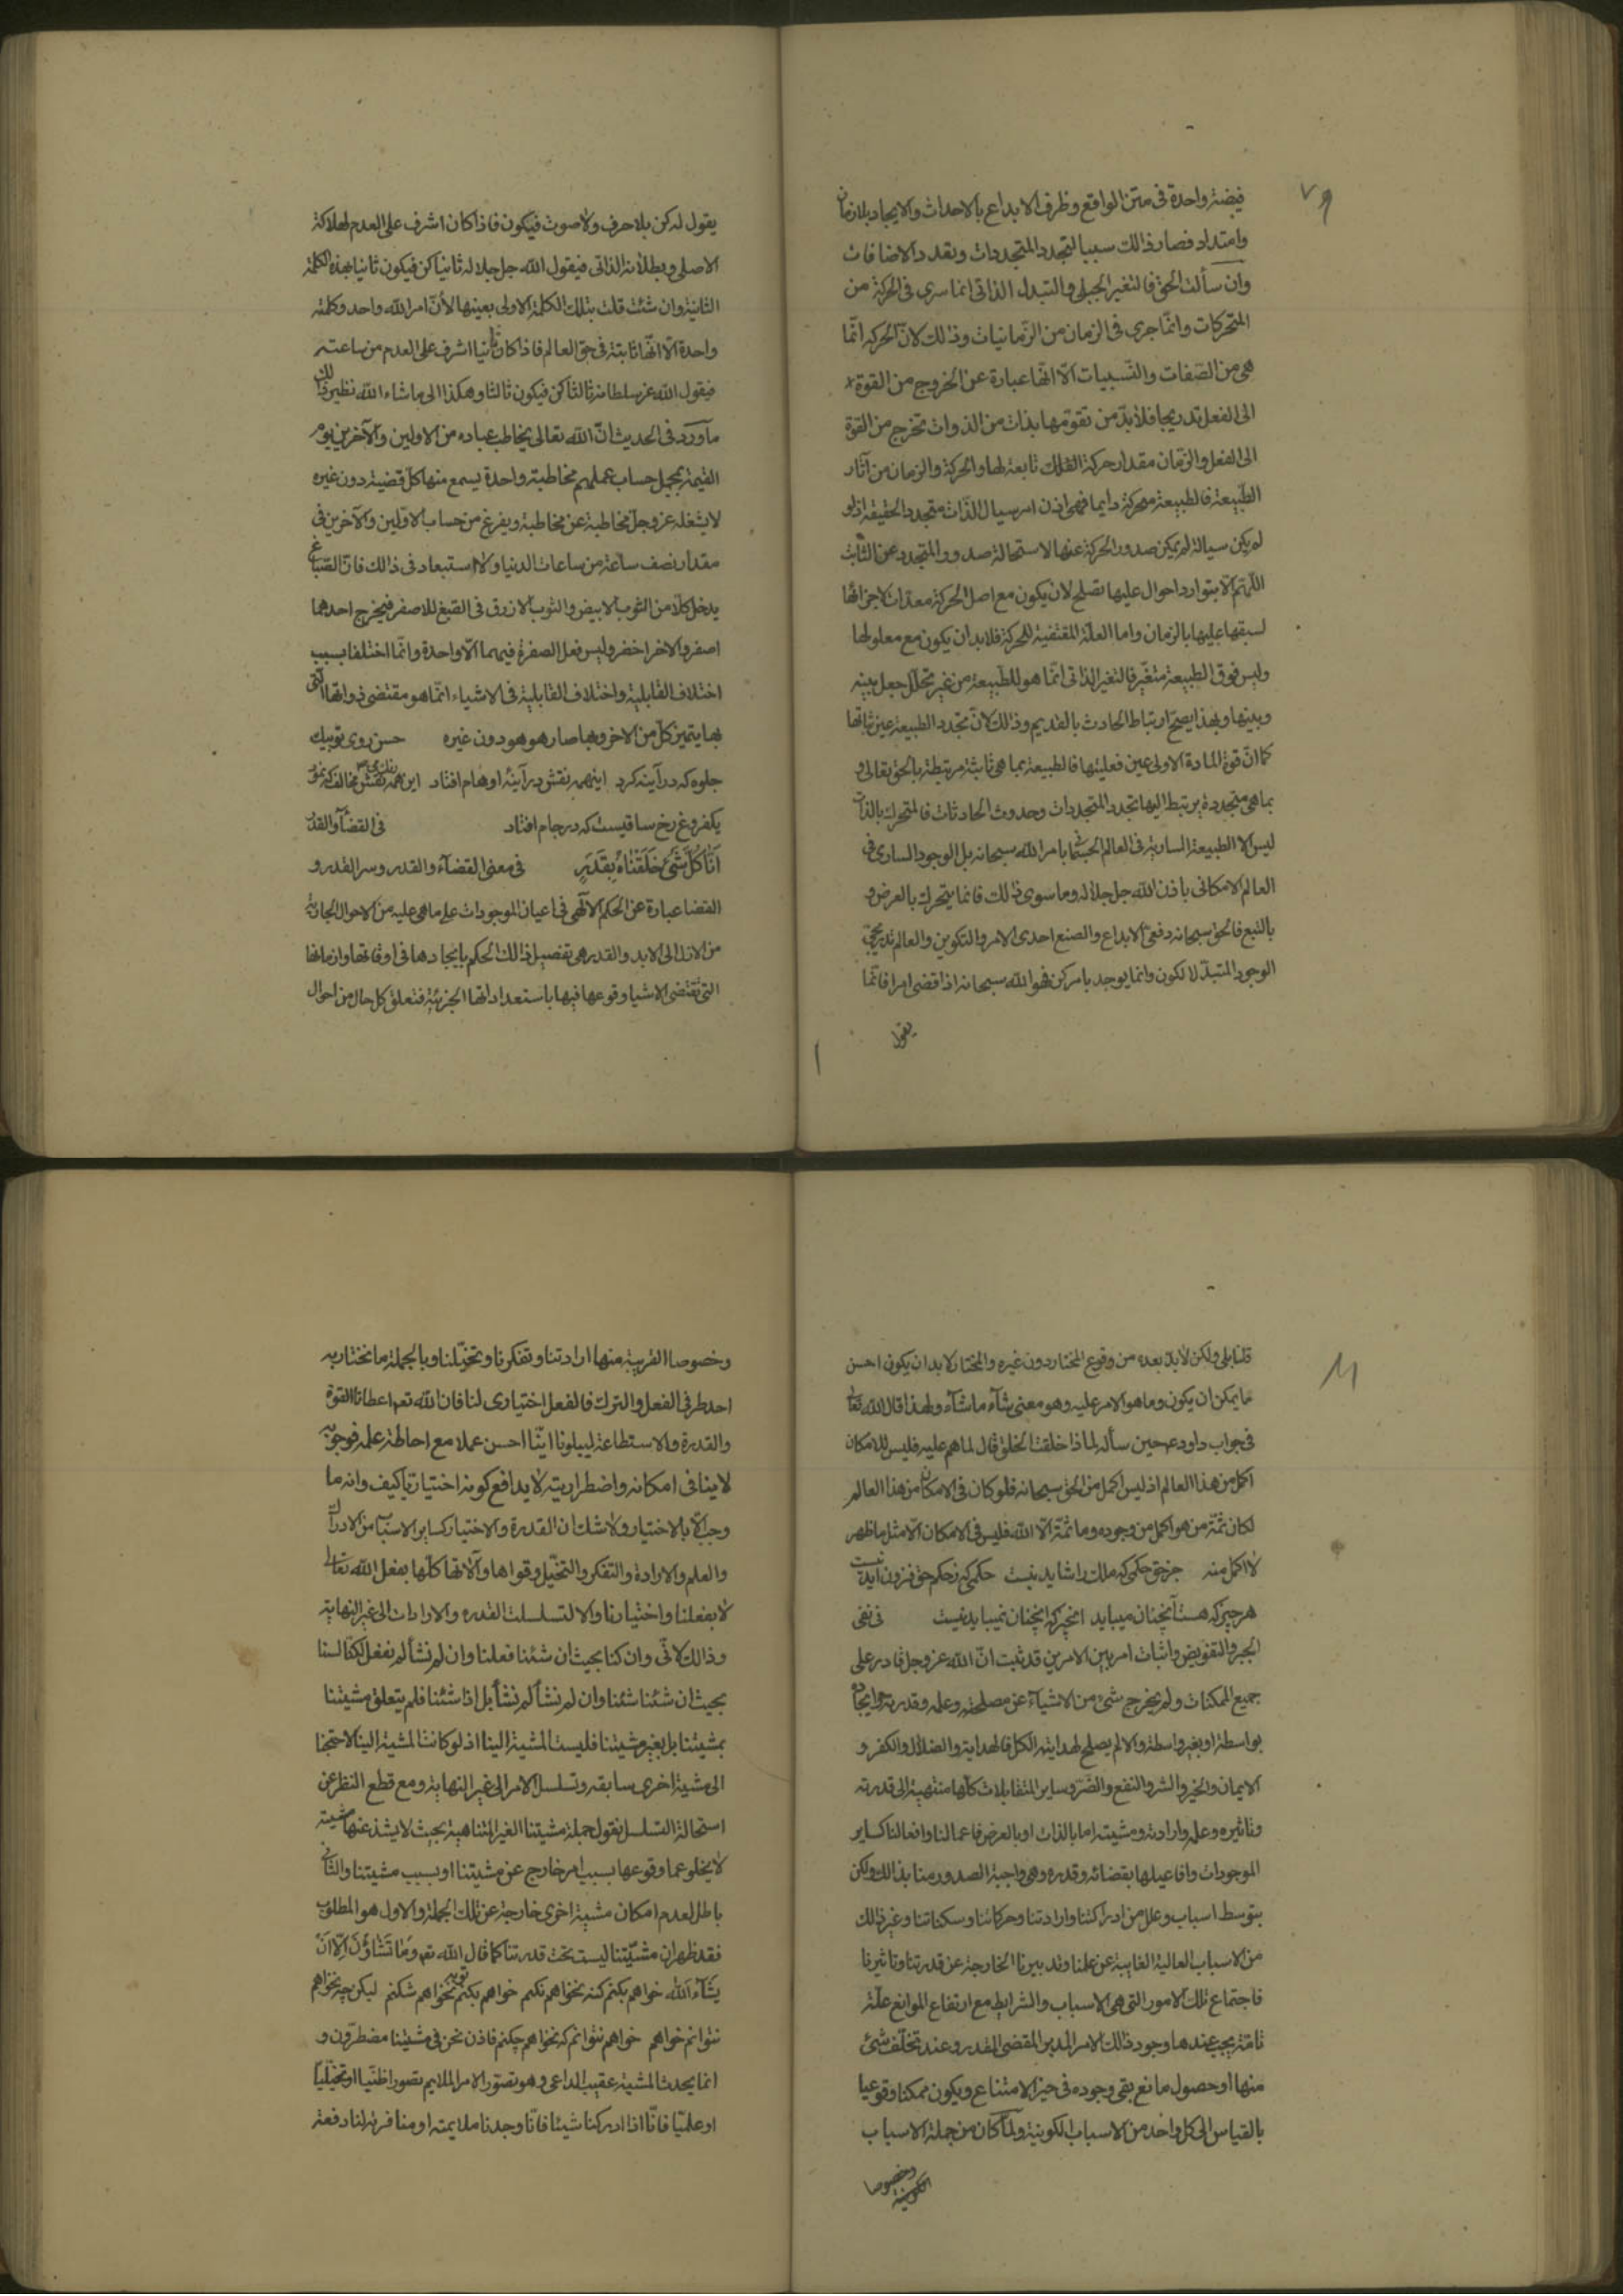 ٧٩
فيضة واحدة في متن الواقع وظرف الابداع بالاحداث والايجاد بلا زمان
وامتداد فصار ذالك سببا لتجدد المتجددات وتعدد الاضافات
وان سألت الحق فالتغير الجبلي والتبدل الذاتي انما سرى في الحركة من
المتحركات وانّما جرى في الزمان من الزّمانيات وذالك لانّ الحركه انّما
هي من الصّفات والنّسبيات الّا انّها عبارة عن الخروج من القوة
الى الفعل تدريجا فلابدّ من تقوّمها بذات من الذوات تخرج من القوة
الى الفعل والزمان مقدار حركة الفلك تابعة لها والحركة والزمان من آثار
الطّبيعة فالطبيعة متحركة دايما فهي اذن امر سيال الذّات متجدد الحقيقة اذ لو
لم يكن سيالة لم يمكن صدور الحركة عنها لاستحالة صدور المتجدد عن الثّابت
اللّهم الّا بتوارد احوال عليها تصلح لان يكون مع اصل الحركة معدّات لاجزائها
لسبقها عليها بالزمان واما العلّة المقتضية للحركة فلابد ان يكون مع معلولها
وليس فوق الطبيعة متغيّر فالتغير الذاتى انّما هو للطّبيعة من غير تخلّل جعل بينه
وبينها وبهذا يصحّ ارتباط الحادث بالقديم وذالك لانّ تجدد الطبيعة عين ثباتها
كما انّ قوة المادة الاولى عين فعليتها فالطبيعة بما هي ثابتة مرتبطة بالحق تعالى و
بما هي متجددة يرتبط اليها تجدد المتجددات وحدوث الحادثات فالمتحرك بالذّات
ليس الا الطبيعة السارية في العالم الجسمانى بامر الله سبحانه بل الوجود السارى فى
العالم الامكانى باذن الله جل جلاله وما سوى ذالك فانما يتحرك بالعرض و
بالتبع فالحق سبحانه دفعى الابداع والصنع احدى الامر والتكوين والعالم تدريجى
الوجود المتبدّل لا لكون وانما يوجد بامر كن فهو الله سبحانه اذا قضى امرا فانّما
يقول
يقول له كن بلا حرف ولا صوت فيكون فاذا كان اشرف على العدم لهلاكة
الاصلى وبطلانه الذاتى فيقول الله جل جلاله ثانيا كن فيكون ثانيا بهذه الكلمة
الثانية وان شئت قلت بتلك الكلمة الاولى بعينها لأنّ امر الله واحد وكلمته
واحدة الّا انّها ثابتة في حق العالم فاذا كان ثانيا اشرف على العدم من ساعته
فيقول الله عز سلطانه ثالثا كن فيكون ثالثا وهكذا الى ما شاء الله نظير ذالك
ما ورد في الحديث انّ الله تعالى يخاطب عباده من الاولين والآخرين يوم
القيمة بمجمل حساب عملهم مخاطبة واحدة يسمع منها كل قضيته دون غيره
لا يشغله عزوجل مخاطبة عن مخاطبة ويفرغ من حساب الاوّلين والآخرين في
مقدار نصف ساعة من ساعات الدنيا ولا استبعاد في ذالك فانّ الصّباغ
يدخل كلا من الثوب الابيض والثوب الازرق في الصّبغ للاصفر فيخرج احدهما
اصفر والاخر اخضر وليس فعل الصفرة فيهما الّا واحدة وانّما اختلفا بسبب
اختلاف القابلية واختلاف القابلية في الاشياء انّما هو مقتضى ذواتها الّتى
بها يتميز كل من الاخر وبها صار هو هو دون غيره حسن روى توبيك
جلوه كه در آينه كرد اينهمه نقش در آينهٔ اوهام افتاد اين همه نقش مخالف كه نمود
يكفروغ رخ ساقيست كه در جام افتاد في القضآء والقدر
انّا كلّ شئ خلقناه بقدر في معنى القضآء والقدر وسر القدر و
القضا عبارة عن الحكم الالٓهى في اعيان الموجودات على ما هي عليه من الاحوال الجارية
من الازل الى الابد والقدر هى تفصيل ذالك الحكم بايجادها في اوقاتها وازمانها
التى تقتضى الاشيا وقوعها فيها باستعداداتها الجزئيّة فتعلق كل حال من احوال
قلنا بلى ولكن لابدّ بعده من وقوع المختار دون غيره والمختار لابد ان يكون احسن
ما يمكن ان يكون وما هو الامر عليه وهو معنى يشآء ما شآء ولهذا قال الله تعالى
في جواب داود ع حين سأله لماذا خلقت الخلق قال لما هم عليه فليس للامكان
اكمل من هذا العالم اذ ليس اكمل من الحق سبحانه فلو كان في الامكان اكمل من هذا العالم
لكان ثمّة من هو اكمل من وجوده وما ثمّة الّا الله فليس في الامكان الّا مثل ما ظهر
لا اكمل منه جز حق حكمى كه ملك را شايد نيست حكمى كه ز حكم حق فزون آيد نيست
هر چيز كه هست آنچنان ميبايد آنچيز كه آنچنان نميبايد نيست في نفى
الجبر والتفويض واثبات امر بين الامرين قد ثبت انّ الله عزوجل قادر على
جميع الممكنات ولم يخرج شئ من الاشيآء عن مصلحته وعلمه وقدرته وايجاده
بواسطة او بغير واسطة والا لم يصلح لمبدئية الكل فالهداية والضلال والكفر و
الايمان والخير والشر والنفع والضّر وساير المتقابلات كلّها منتهية الى قدرته
وتاثيره وعلمه وارادته ومشيته اما بالذات او بالعرض فاعمالنا وافعالنا كساير
الموجودات وافاعيلها بقضائه وقدره وهى واجبة الصدور منا بذالك ولكن
بتوسط اسباب وعلل من ادراكتنا وارادتنا وحركاتنا وسكناتنا وغير ذالك
من الاسباب العالية الغايبة عن علمنا وتدبيرنا الخارجة عن قدرتنا وتاثيرنا
فاجتماع تلك الامور التي هي الاسباب والشرايط مع ارتفاع الموانع علّة
تامّة يجب عندها وجود ذالك الامر المدبر المقضى المقدر وعند تخلّف شئ
منها او حصول مانع بقى وجوده في حيز الامتناع ويكون ممكنا وقوعيا
بالقياس الى كل واحد من الاسباب الكونية ولمّا كان من جملة الاسباب
الكونية
وخصوصا
وخصوصا القريبة منها ارادتنا وتفكرنا وتخيّلنا وبالجملة ما نختار به
احد طرفى الفعل والترك فالفعل اختيارى لنا فان الله تعم اعطانا القوة
والقدرة والاستطاعة ليبلونا ايّنا احسن عملا مع احاطة علمه فوجوبه
لا ينافى امكانه واضطراريته لا يدافع كونه اختياريّا كيف وانه ما
وجب الّا بالاختيار ولا شك ان القدرة والاختيار كساير الاسباب من الادراك
والعلم والارادة والتفكر والتخيّل وقواها وآلاتها كلّها بفعل الله تعالى
لا بفعلنا واختيارنا والا لتسلسلت القدره والارادات الى غير النهاية
وذالك لانّى وان كنا بحيث ان شئنا فعلنا وان لم نشأ لم نفعل لكنّا لسنا
بحيث ان شئنا شئنا وان لم نشأ لم نشأ بل اذا شئنا فلم يتعلق مشيتنا
بمشيتنا بل بغير مشيتنا فليست المشية الينا اذ لو كانت المشية الينا لاحتجنا
الى مشية اخرى سابقه وتسلسل الامر الى غير النهاية ومع قطع النظر عن
استحالة التسلسل نقول جملة مشيتنا الغير المتناهية بحيث لا يشذ عنها مشية
لا يخلو عما وقوعها بسبب امر خارج عن مشيتنا او بسبب مشيتنا والثانى
باطل لعدم امكان مشية اخرى خارجة عن تلك الجملة والاول هو المطلوب
فقد ظهر ان مشيّتنا ليست تحت قدرتنا كما قال الله تعم وما تشاؤن الّا ان
يشآء الله خواهم بكنم كنه نخواهم نكنم خواهم بكنم توبه نخواهم شكنم ليكن چه نخواهم
نتوانم خواهم خواهم نتوانم كه نخواهم چكنم فاذن نحن في مشيتنا مضطرّون و
انما يحدث المشية عقيب الداعى وهو تصوّر الامر الملايم تصورا ظنّيا او تخيّليّا
او علميّا فانّا اذا ادركنا شيئا فانّا وجدنا ملايمته او منافرته لنا دفعة